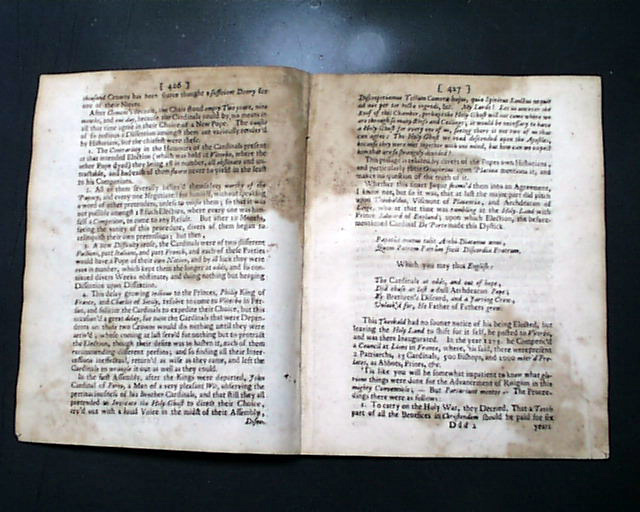 [ 426 ]
thousand Crowns has been scarce thought a sufficient Dowry for
one of their Nieces.
After Clement's Decease, the Chair stood empty Two years, nine
months, and one day, because the Cardinals could by no means in
all that time agree in their Choice of a New Pope. The causes
of so tedious a Dissention amongst them are variously render'd
by Historians, but the chiefest were these.
1. The Contrariety in the Humours of the Cardinals present
at that intended Election (which was held at Viterbo, where the
other Pope dyed) they being 18 in number, all obstinate and un-
tractable, and had each of them sworn never to yield in the least
to his Companion.
2. All of them severally believ'd themselves worthy of the
Papacy, and every one Negotiated for himself, without speaking
a word of other pretenders, unless to oppose them; so that it was
not possible amongst 18 such Electors, where every one was him-
self a Competitor, to come to any Result. But after 10 Months,
seeing the vanity of this procedure, divers of them began to
relinquish their own pretensions; but then
3. A new Difficulty arose, the Cardinals were of two different
Factions, part Italians, and part French, and each of these Parties
would have a Pope of their own Nation, and by ill luck they were
even in number, which kept them the longer at odds, and so con-
tinued divers Weeks obstinate, and doing nothing but heaping
Dissention upon Dissention.
4. This delay growing tedious to the Princes, Philip King of
France, and Charles of Sicily, resolve to come to Viterbo in Per-
son, and sollicite the Cardinals to expedite their Choice, but this
occasion'd a great delay, for now the Cardinals that were Depen-
dents on those two Crowns would do nothing until they were
arriv'd; whose coming at last serv'd for nothing but to protract
the Election, though their desire was to hasten it, each of them
recommending different persons; and so finding all their Inter-
cessions ineffectual, return'd as wise as they came, and left the
Cardinals to wrangle it out as well as they could.
In the first Assembly, after the Kings were departed, John
Cardinal of Porto, a Man of a very pleasant Wit, observing the
pertinaciousness of his Brother Cardinals, and that still they all
pretended to Invocate the Holy Ghost to direct their Choice,
cry'd out with a loud Voice in the midst of their Assembly,
Discoo-
[ 427 ]
Discooperiamus Tectum Cameræ hujus, quia Spiritus Sanctus nequit
ad nos per tot tecta ingredi, &c. My Lords! Let us uncover the
Roof of this Chamber, perhaps the Holy Ghost will not come where we
are through so many Roofs and Ceilings; it would be necessary to have
a Holy Ghost for every one of us, seeing there is not two of us that
can agree: The Holy Ghost we read descended upon the Apostles,
because they were met together with one mind, but how can we expect
him that are so strangely divided?
This passage is related by divers of the Popes own Historians,
and particularly Onuphrius upon Platina mentions it, and
makes no question of the truth of it.
Whether this smart Joque sham'd them into an Agreement,
I know not, but so it was, that at last the major part did pitch
upon Theobaldus, Viscount of Placentia, and Archdeacon of
Liege, who at that time was rambling at the Holy-Land with
Prince Edward of England; upon which Election, the before-
mentioned Cardinal De Porto made this Dystick.
Papatus munus tulit Archi-Diaconus unus,
Quem Patrem Patrum fecit Discordia Fratrum.
Which you may thus English:
The Cardinals at odds, and out of hope,
Did chuse at last a dull Archdeacon Pope;
By Brethren's Discord, and a Jarring Crew,
Unlook'd for, He Father of Fathers grew.
This Theobald had no sooner notice of his being Elected, but
leaving the Holy Land to shift for it self, he posted to Viterbo,
and was there Inaugurated. In the year 1273. he Conven'd
a Council at Lions in France, where, 'tis said, there were present
2 Patriarchs, 15 Cardinals, 500 Bishops, and 1000 miter'd Pre-
lates, as Abbots, Priors, &c.
'Tis like you will be somewhat impatient to know what glo-
rious things were done for the Advancement of Religion in this
mighty Conventicle; But Parturiunt montes The Procee-
dings there were as follows:
1. To carry on the Holy War, they Decreed, That a Tenth
part of all the Benefices in Christendom should be paid for six
Ddd 2 years